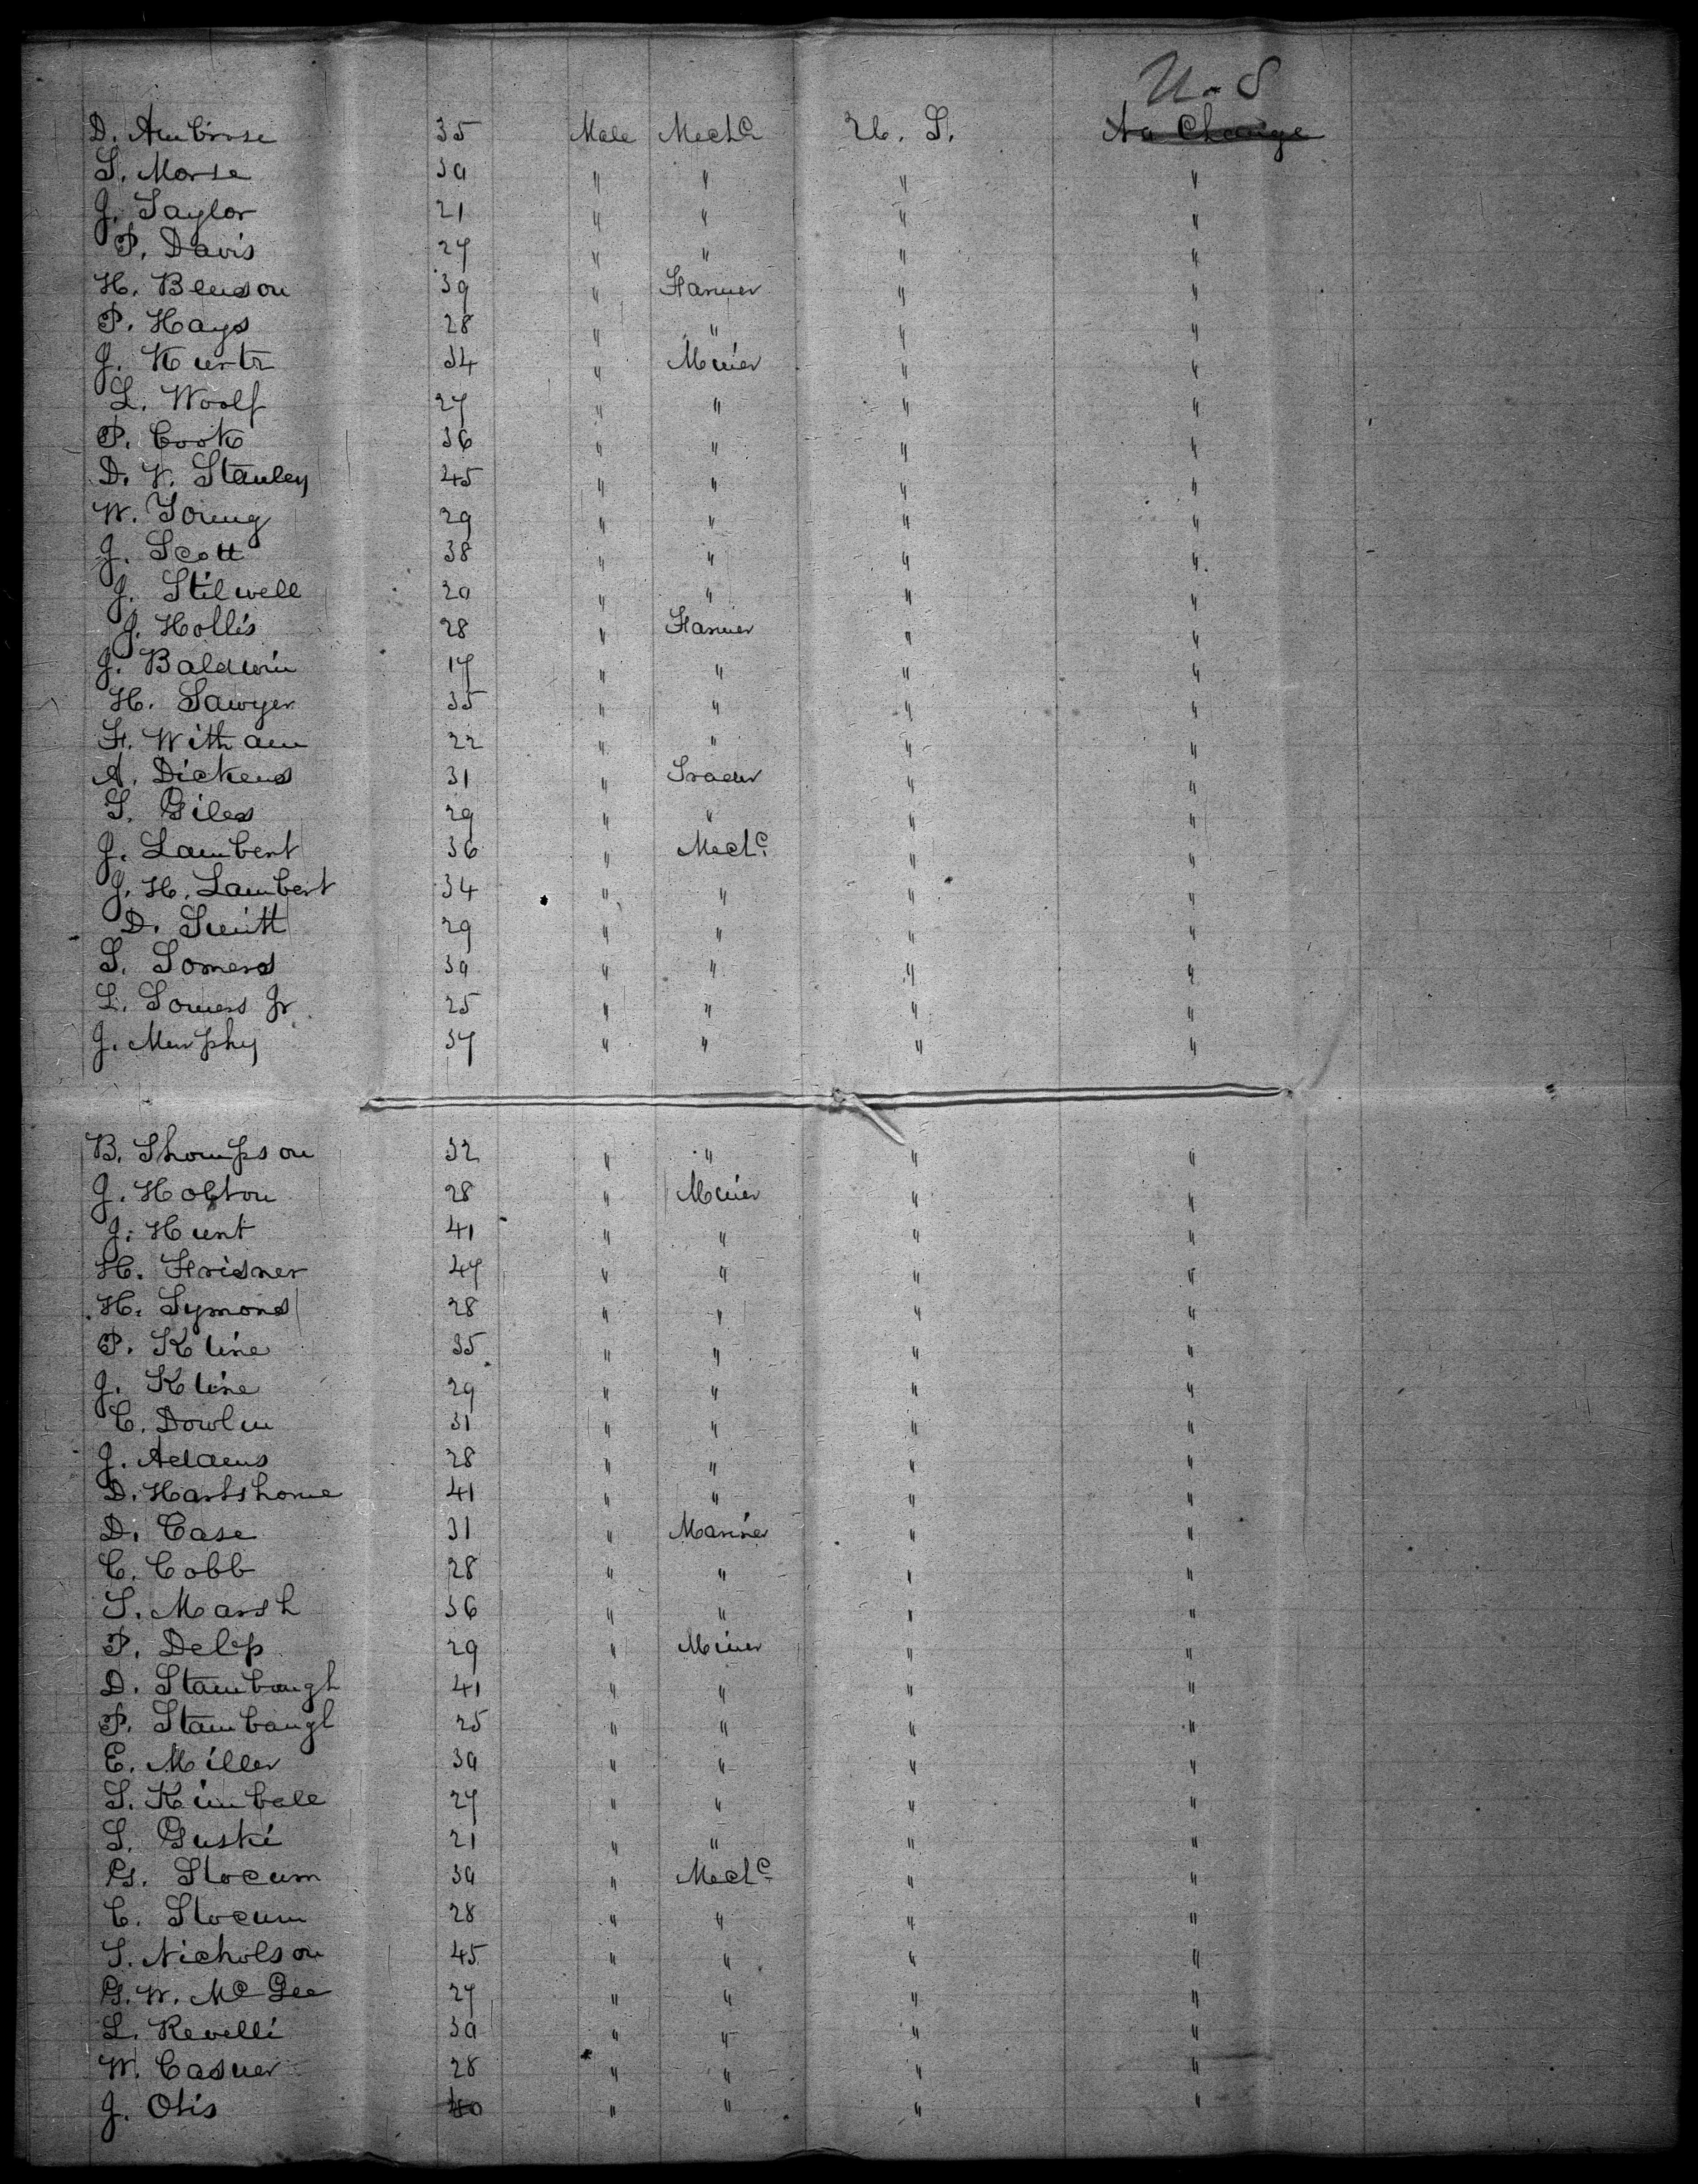 U. S
D. Ambrose 35 Male Mechc U. S. No Change
S. Morse 30 " " " "
J. Taylor 21 " " " "
P. Davis 27 " " " "
H. Benson 39 " Farmer " "
P. Hays 28 " " " "
J. Kurtz 34 " Miner " "
L. Woolf 27 " " " "
P. Cook 36 " " " "
D. W. Stanley 45 " " " "
W. Young 29 " " " "
J. Scott 38 " " " "
J. Stilwell 30 " " " "
J. Hollis 28 " Farmer " "
J. Baldwin 17 " " " "
H. Sawyer 35 " " " "
F. Witham 22 " " " "
A. Dickens 31 " Trader " "
S. Giles 29 " " " "
J. Lambert 36 " Mechc " "
J. H. Lambert 34 " " " "
D. Smith 29 " " " "
S. Somers 30 " " " "
L. Somers Jr 25 " " " "
J. Murphy 37 " " " "
B. Thompson 32 " " " "
J. Holton 28 " Miner " "
J. Hunt 41 " " " "
H. Frisner 47 " " " "
H. Symons 28 " " " "
P. Kline 35 " " " "
J. Kline 29 " " " "
C. Dowlin 31 " " " "
J. Adams 28 " " " "
D. Hartshorne 41 " " " "
D. Case 31 " Mariner " "
C. Cobb 28 " " " "
S. Marsh 36 " " " "
P. Delep 29 " Miner " "
D. Stambaugh 41 " " " "
P. Stambaugh 25 " " " "
E. Miller 30 " " " "
S. Kimball 27 " " " "
S. Guski 21 " " " "
G. Slocum 30 " Mechc " "
C. Slocum 28 " " " "
S. Nicholson 45 " " " "
G. W. McGee 27 " " " "
L. Revelli 30 " " " "
W. Casner 28 " " " "
J. Otis " " " "